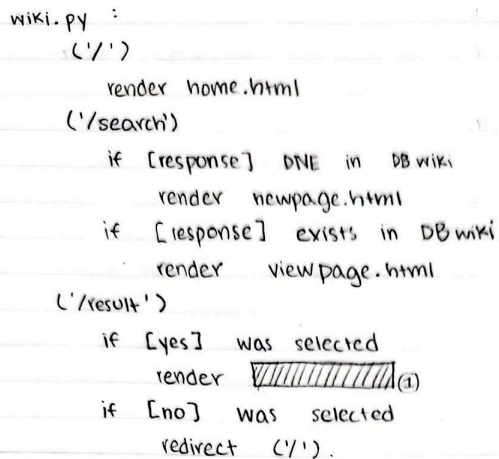 wiki.py :
('/')
render home.html
('/search')
if [response] DNE in DB wiki
render newpage.html
if [response] exists in DB wiki
render viewpage.html
('/result')
if [yes] was selected
render ①
if [no] was selected
redirect ('/').